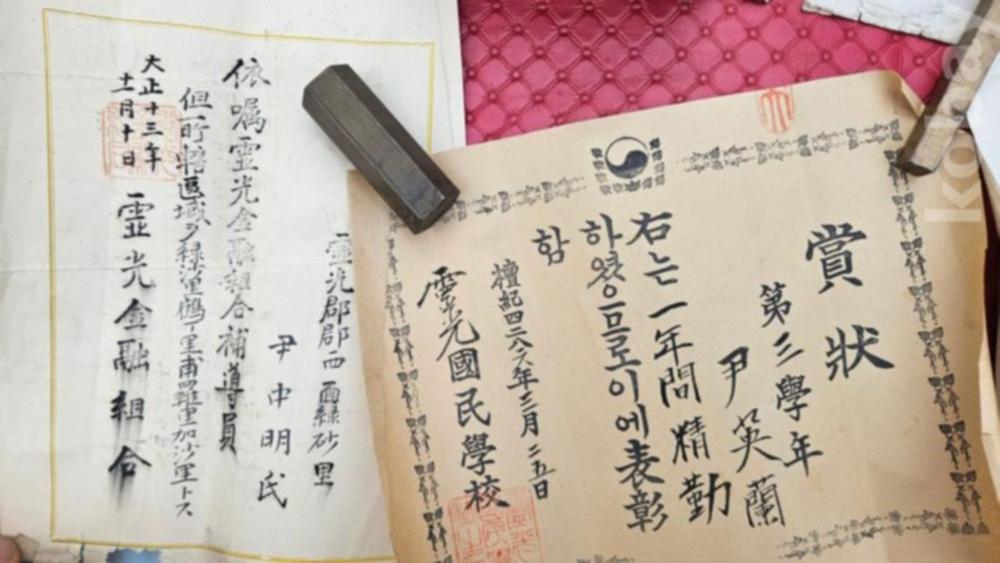 靈光郡郡西面綠砂里
尹中明氏
依囑靈光金融組合補導員
但所轄區域ヲ綠沙里鶴丁里甫羅里加沙里トス
大正十三年
十一月十日
靈光金融組合
賞狀
第三學年
尹英蘭
右는一年間精勤
하였으므로이에表彰
함
檀紀四二八六年三月二五日
靈光國民學校